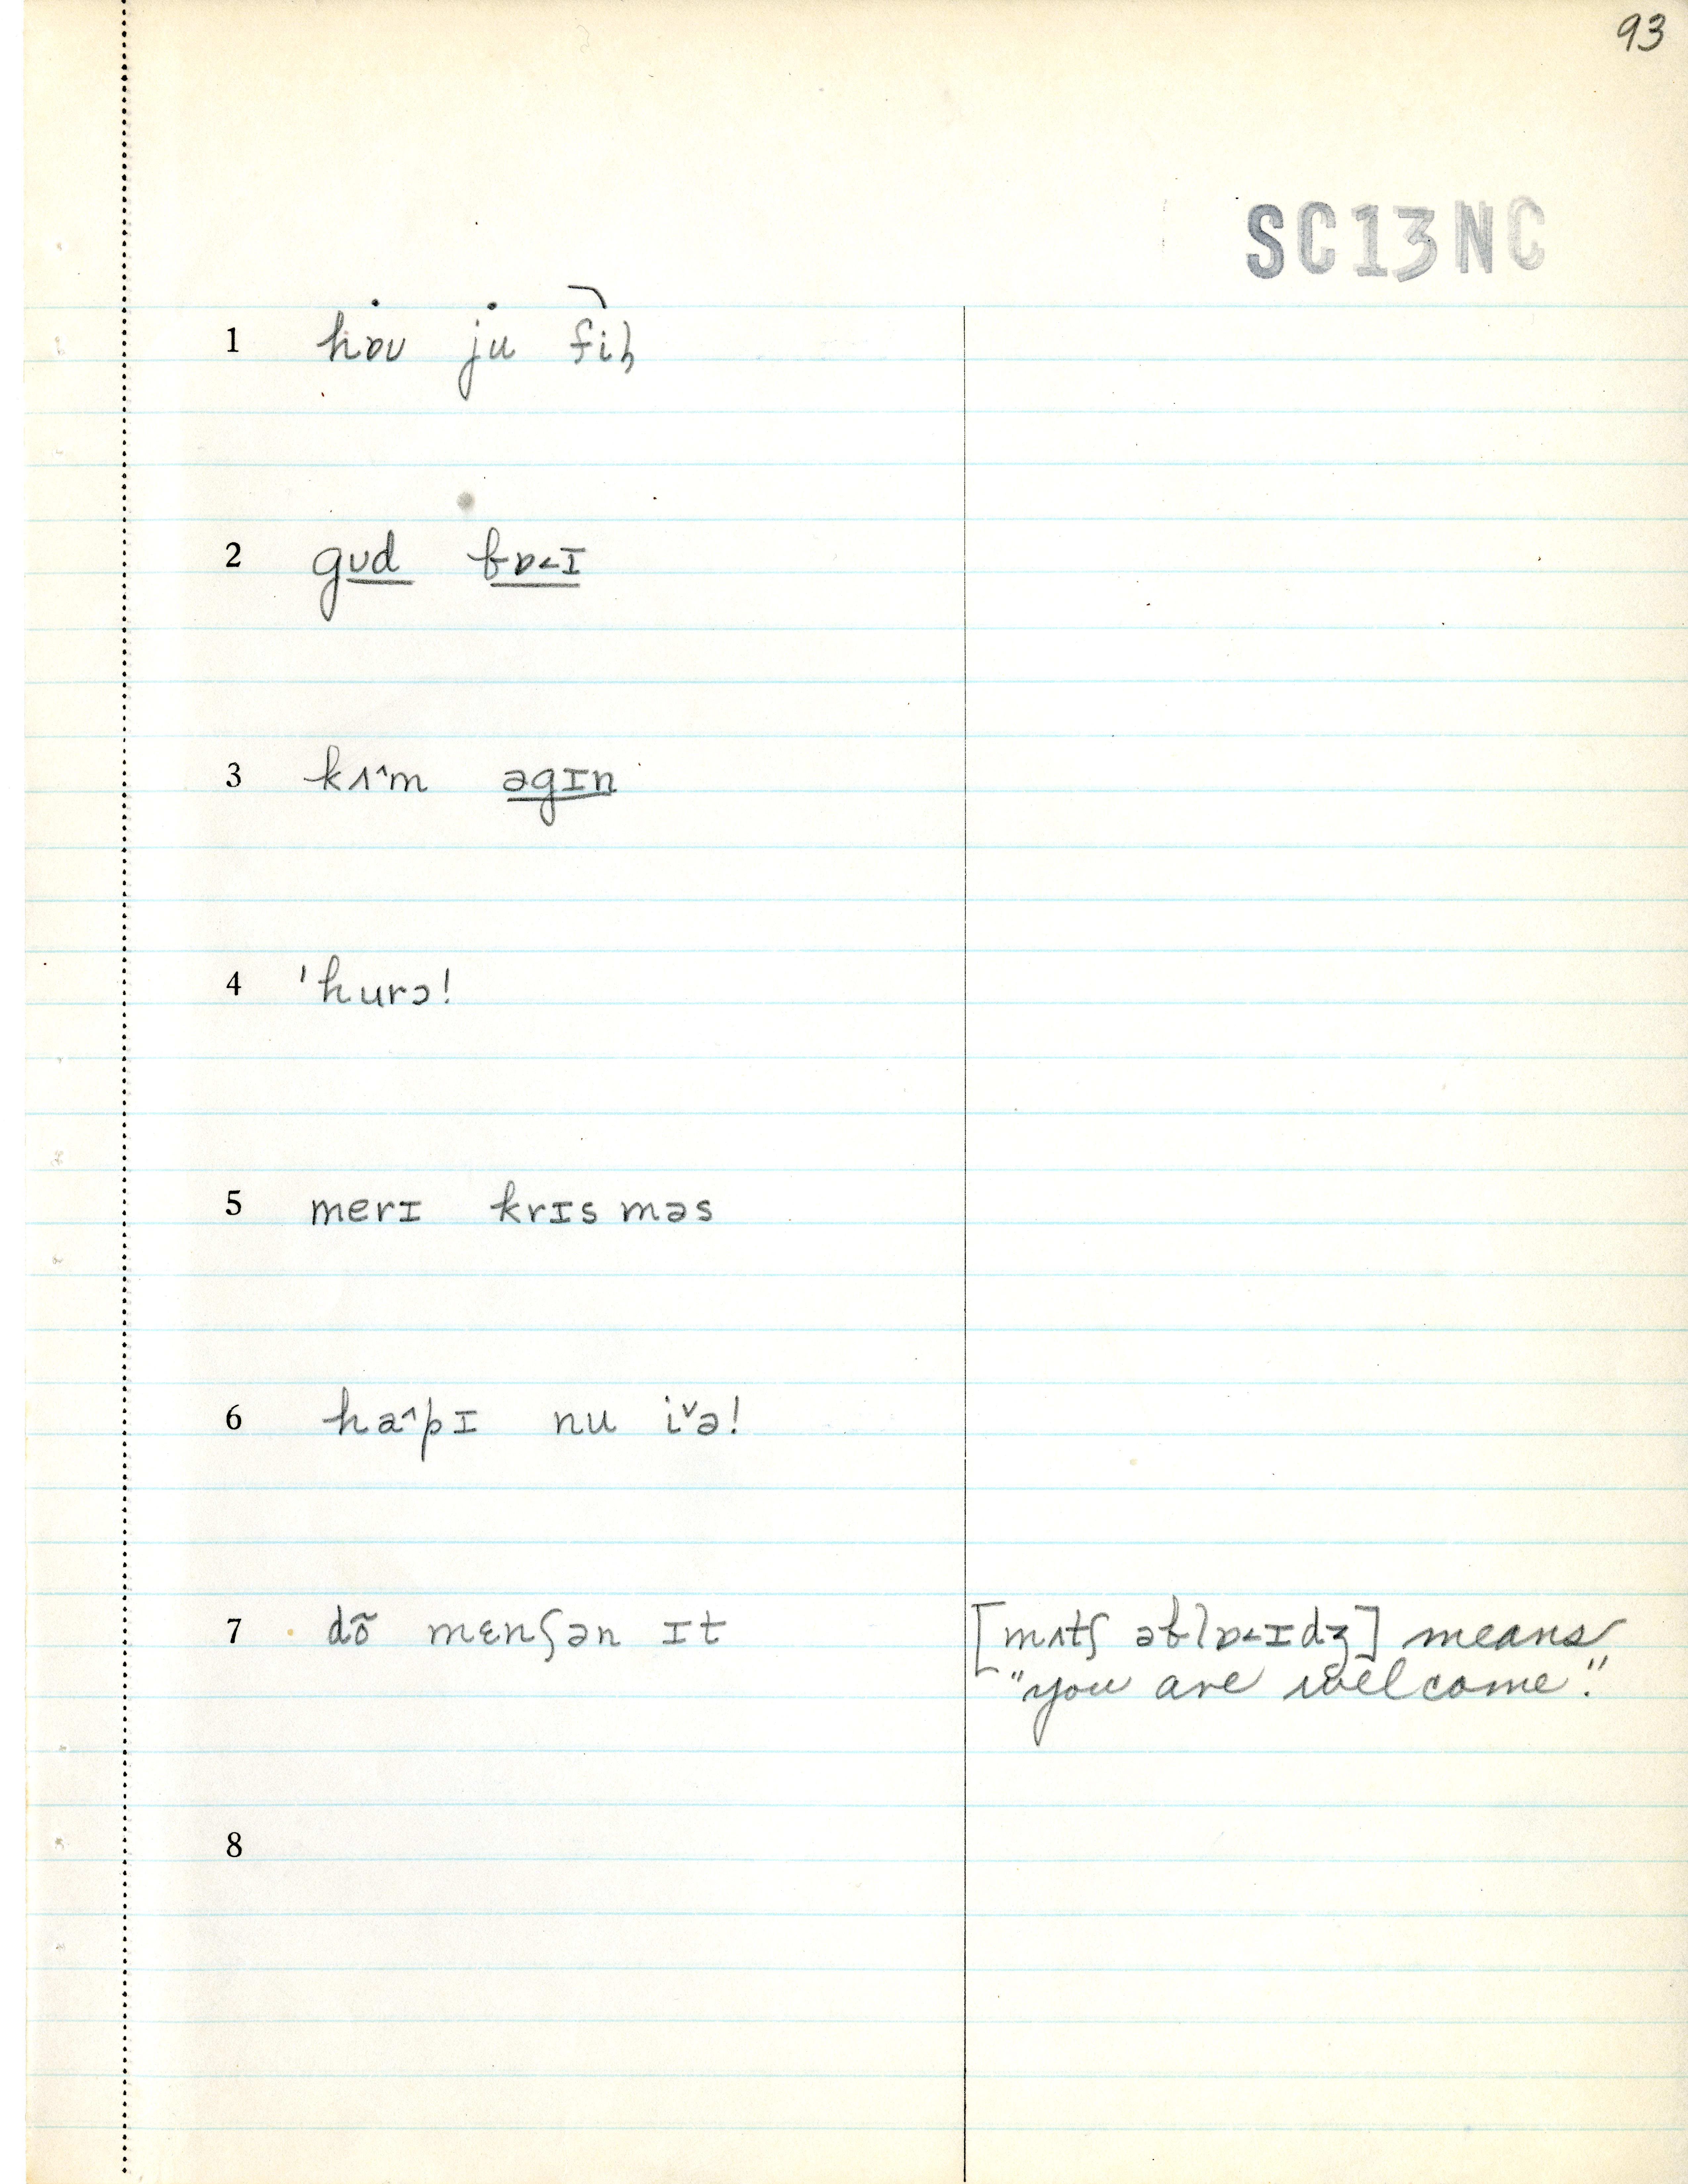 93
SC13NC
1 hɒʊ ju fil̩
2 gʊd ɓɒ˂ɪ
3 kʌ˄m əgɪn
4 ˈhurɔ!
5 merɪ krɪs məs
6 ha˄pɪ nu i˅ə!
7 dõ mɛnʃən ɪt [mʌtʃ əɓlɒ˂ɪdʒ] means
"you are welcome."
8